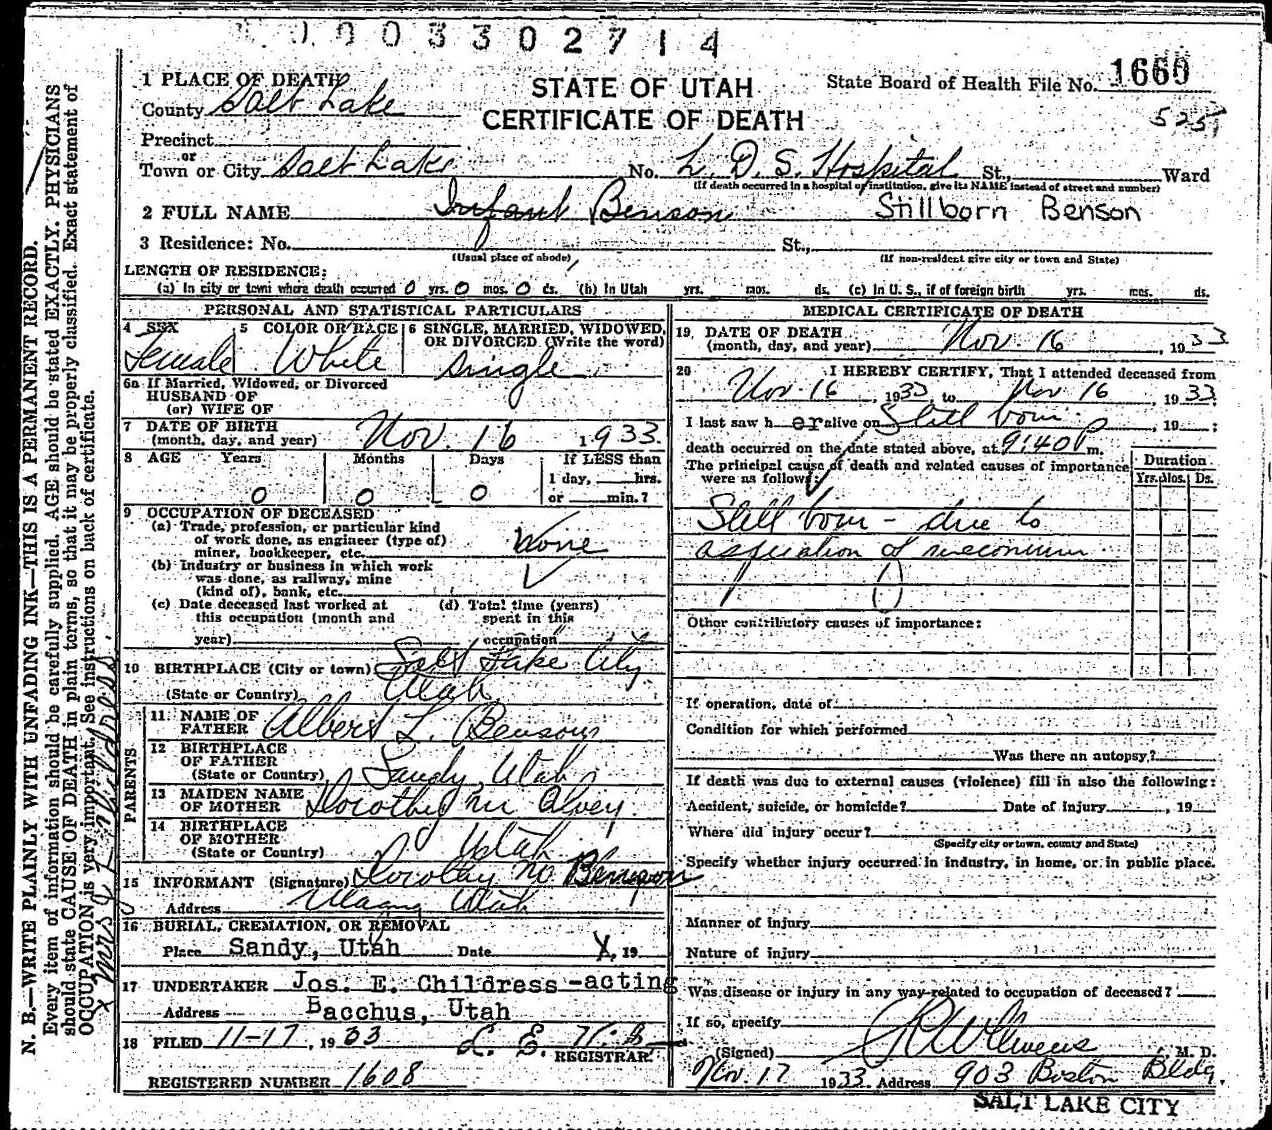 0003302714
1 PLACE OF DEATH
County Salt Lake
STATE OF UTAH
CERTIFICATE OF DEATH
State Board of Health File No. 1660
525
Precinct
or
Town or City Salt Lake No. L. D. S. Hospital St., Ward
(If death occurred in a hospital or institution, give its NAME instead of street and number)
2 FULL NAME Infant Benson Stillborn Benson
3 Residence: No. St.,
(Usual place of abode) (If non-resident give city or town and State)
LENGTH OF RESIDENCE:
(a) In city or town where death occurred 0 yrs. 0 mos. 0 ds. (b) In Utah yrs. mos. ds. (c) In U. S., if of foreign birth yrs. mos. ds.
PERSONAL AND STATISTICAL PARTICULARS
4 SEX 5 COLOR OR RACE 6 SINGLE, MARRIED, WIDOWED,
OR DIVORCED (Write the word)
Female White Single
6a If Married, Widowed, or Divorced
HUSBAND OF
(or) WIFE OF
7 DATE OF BIRTH
(month, day, and year) Nov. 16 1933
8 AGE Years Months Days If LESS than
1 day, hrs.
0 0 0 or min.?
9 OCCUPATION OF DECEASED
(a) Trade, profession, or particular kind
of work done, as engineer (type of)
miner, bookkeeper, etc. None
(b) Industry or business in which work
was done, as railway, mine
(kind of), bank, etc.
(c) Date deceased last worked at (d) Total time (years)
this occupation (month and spent in this
year) occupation
10 BIRTHPLACE (City or town) Salt Lake City
(State or Country) Utah
PARENTS
11 NAME OF
FATHER Albert L. Benson
12 BIRTHPLACE
OF FATHER
(State or Country) Sandy, Utah
13 MAIDEN NAME
OF MOTHER Dorothy Mc Alvey
14 BIRTHPLACE
OF MOTHER
(State or Country) Utah
15 INFORMANT (Signature) Benson
Address Magna Utah
16 BURIAL, CREMATION, OR REMOVAL
Place Sandy, Utah Date X, 19
17 UNDERTAKER Jos. E. Childress -acting
Address Bacchus, Utah
18 FILED 11-17, 1933 L. E.
REGISTRAR.
REGISTERED NUMBER 1608
MEDICAL CERTIFICATE OF DEATH
19 DATE OF DEATH
(month, day, and year) Nov. 16, 1933
20 I HEREBY CERTIFY, That I attended deceased from
Nov. 16, 1933, to Nov 16, 1933.
I last saw h er alive on Still born, 19 ;
death occurred on the date stated above, at 9:40 P m.
The principal cause of death and related causes of importance
were as follows:
Duration
Yrs. Mos. Ds.
Still born - due to
aspiration of meconium
Other contributory causes of importance:
If operation, date of
Condition for which performed
Was there an autopsy?
If death was due to external causes (violence) fill in also the following:
Accident, suicide, or homicide? Date of injury, 19
Where did injury occur?
(Specify city or town, county and State)
Specify whether injury occurred in industry, in home, or in public place.
Manner of injury
Nature of injury
Was disease or injury in any way related to occupation of deceased?
If so, specify
(Signed) Owens M. D.
Nov. 17 1933 Address 903 Boston Bldg.
SALT LAKE CITY
N. B.—WRITE PLAINLY WITH UNFADING INK—THIS IS A PERMANENT RECORD.
Every item of information should be carefully supplied. AGE should be stated EXACTLY. PHYSICIANS
should state CAUSE OF DEATH in plain terms, so that it may be properly classified. Exact statement of
OCCUPATION is very important. See instructions on back of certificate.
x Mrs J E Childress.